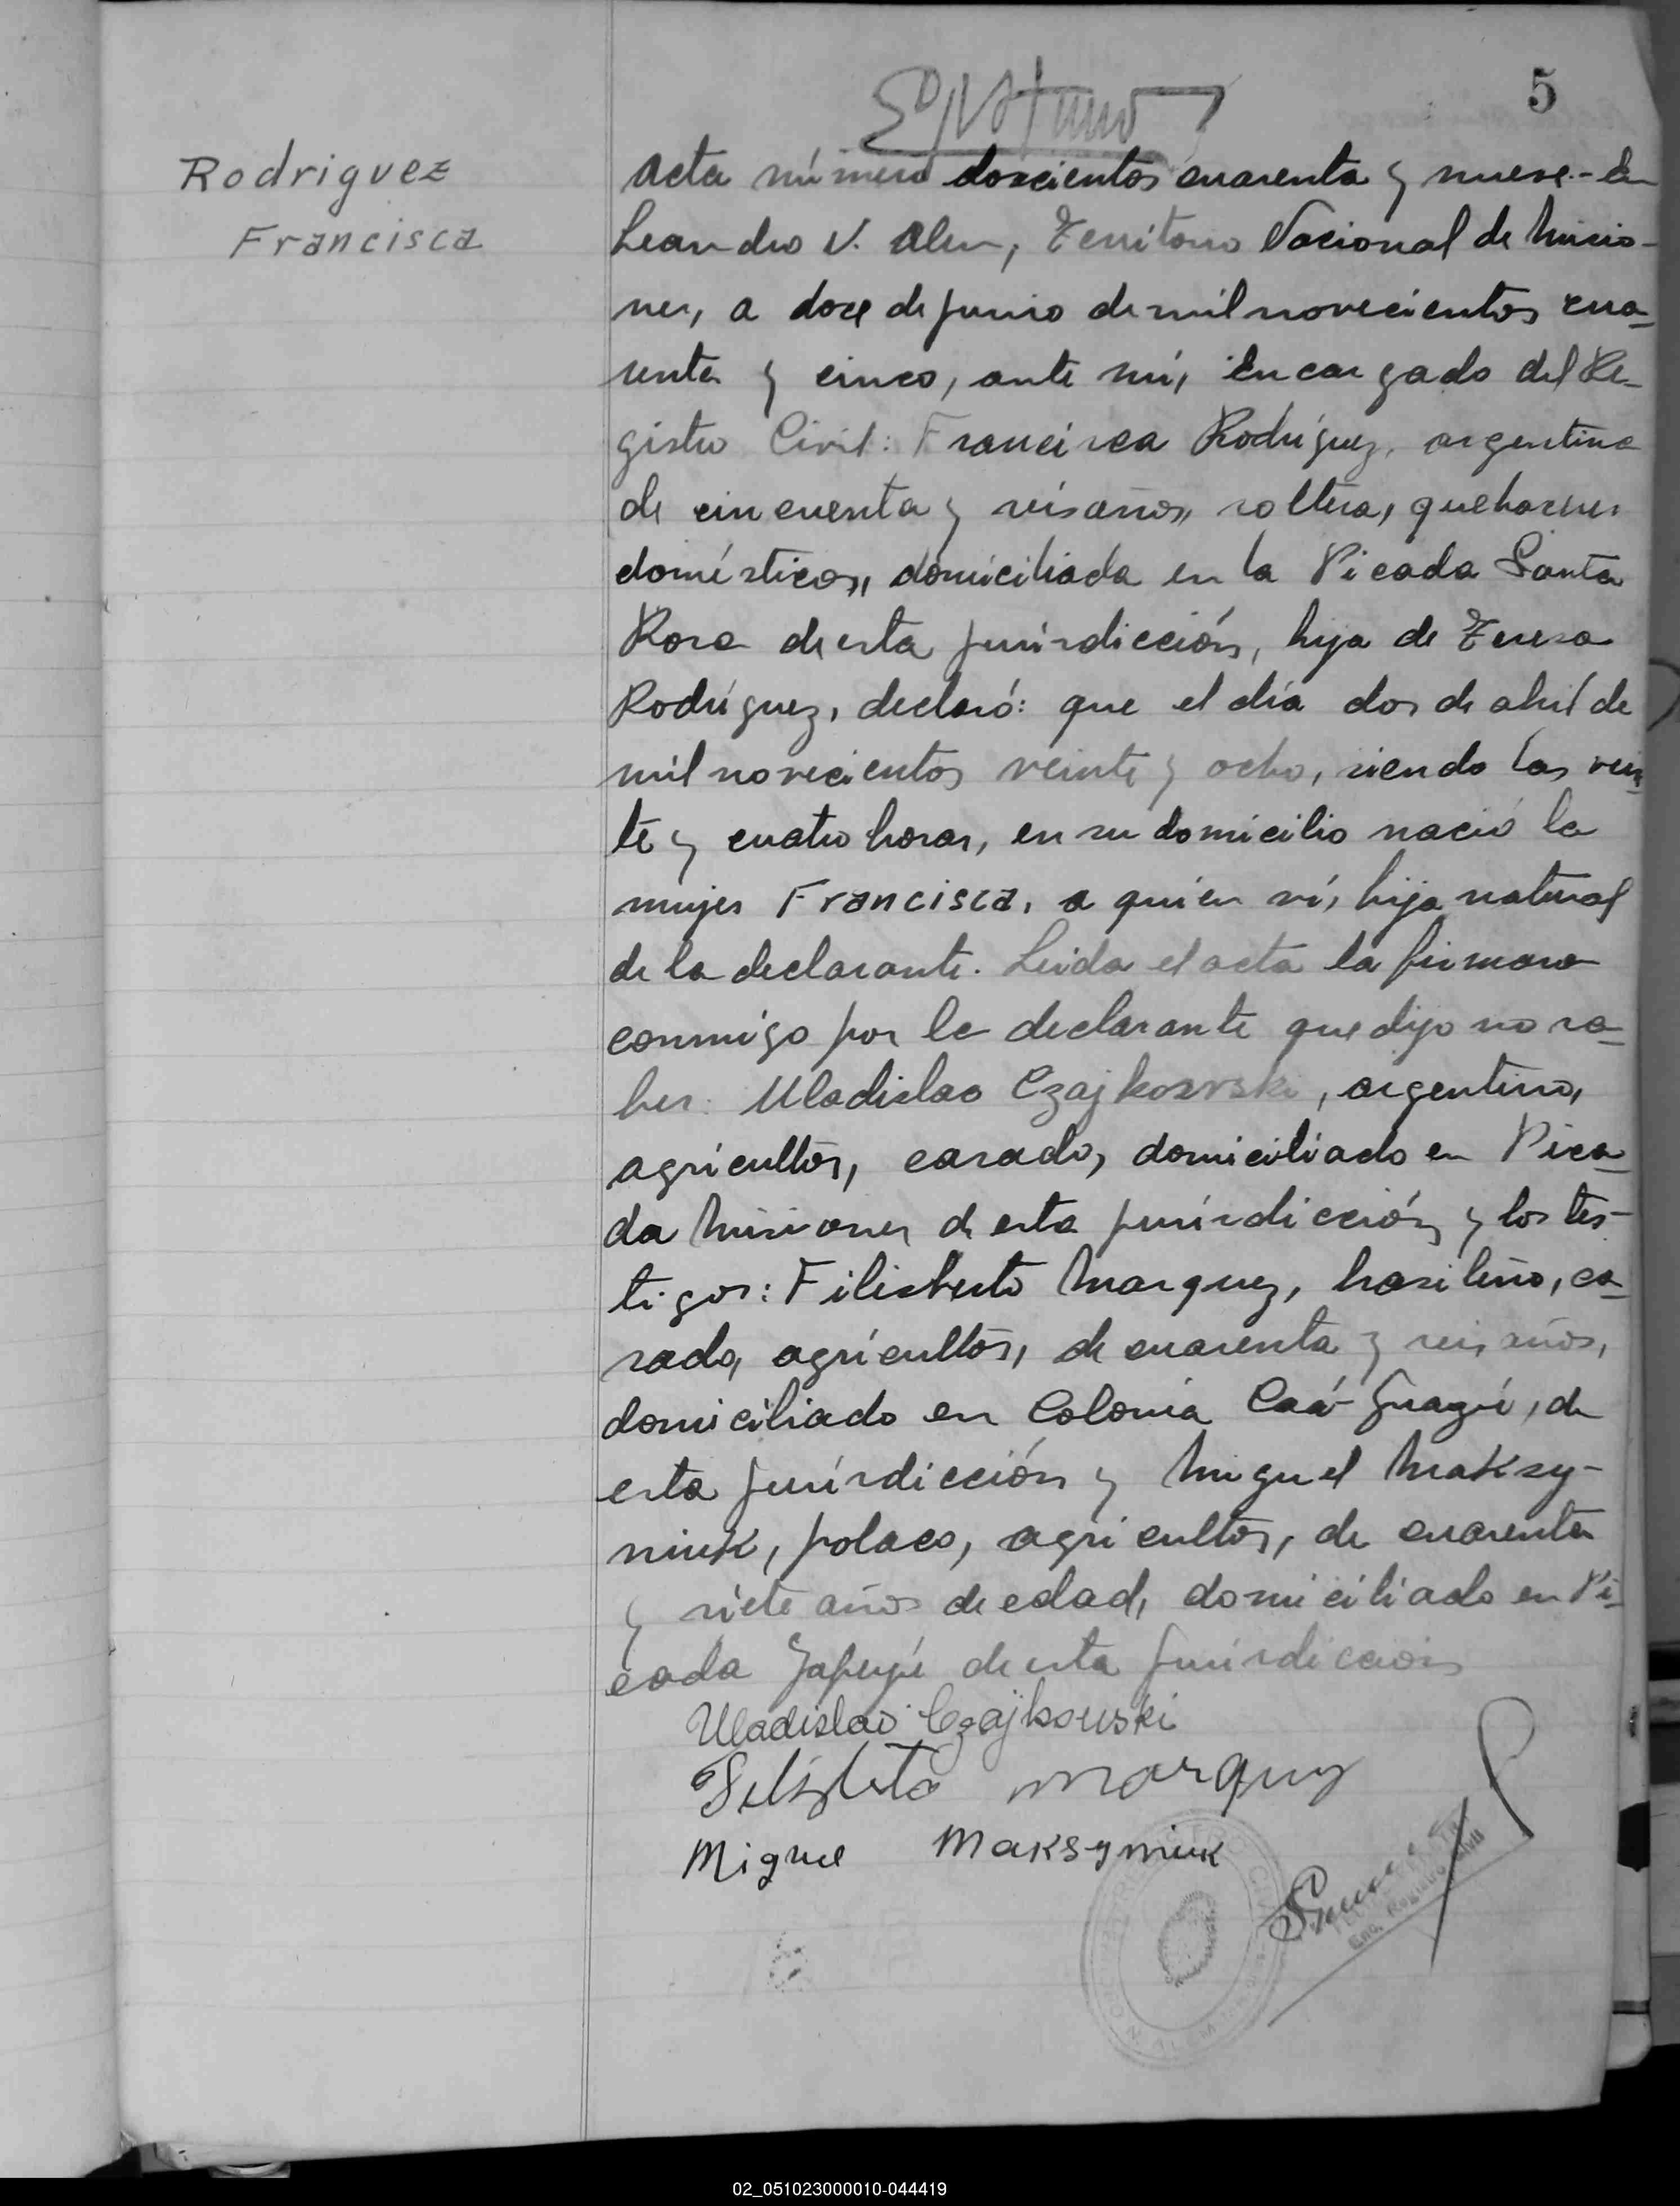 5
Rodriguez
Francisca
Acta número doscientos cuarenta y nueve.- En
Leandro N. Alem, Territorio Nacional de Misio-
nes, a doce de junio de mil novecientos cua-
renta y cinco, ante mí, Encargado del Re-
gistro Civil: Francisca Rodríguez, argentina
de cincuenta y seis años, soltera, quehaceres
domésticos, domiciliada en la Picada Santa
Rosa de esta jurisdicción, hija de Teresa
Rodríguez, declaró: que el día dos de abril de
mil novecientos veinte y ocho, siendo las vein-
te y cuatro horas, en su domicilio nació la
mujer Francisca, a quien ví, hija natural
de la declarante. Leida el acta la firmaro
conmigo por la declarante que dijo no sa-
ber: Uladislao Czajkowski, argentino,
agricultor, casado, domiciliado en Pica-
da Misiones de esta jurisdicción y los tes-
tigos: Filisberto Marquez, brasileño, ca-
sado, agricultor, de cuarenta y seis años,
domiciliado en Colonia Caá-Guazú, de
esta jurisdicción y Miguel Maksy-
niuk, polaco, agricultor, de cuarenta
y siete años de edad, domiciliado en Pi-
cada Yapeyú de esta jurisdiccion
Uladislao Czajkowski
Filisbeto Marquez
Migue Maksymiuk
Enc. Registro Civil
02_051023000010-044419